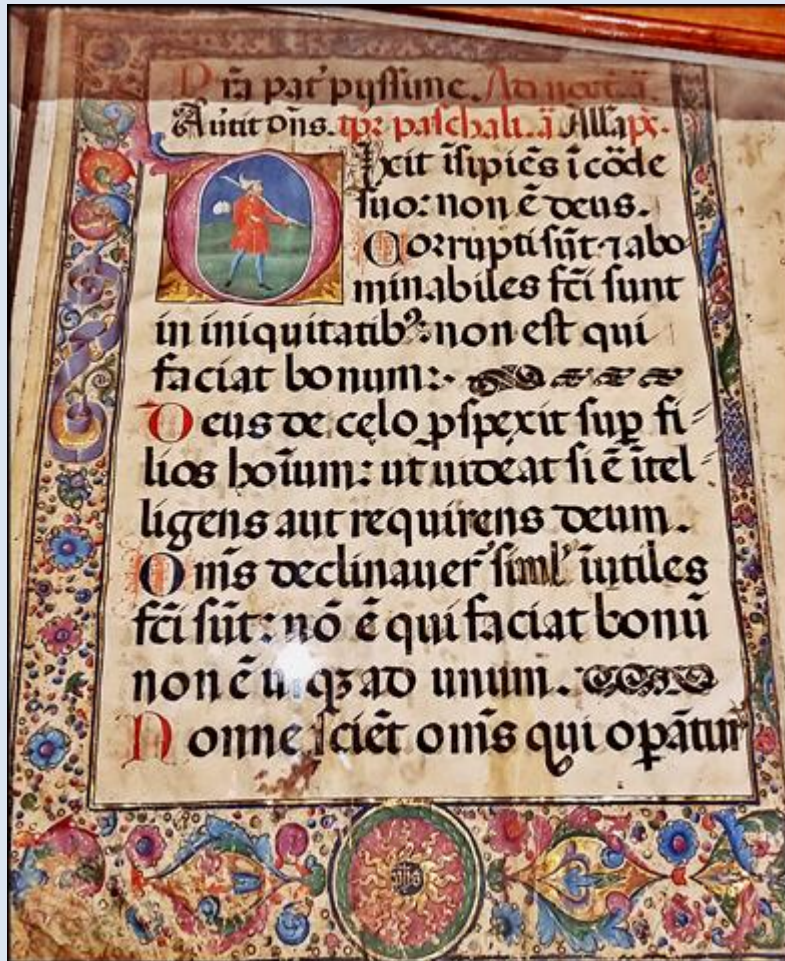 Pr̃a pat᷑ pyssime. Ad noct. ã.
Avertit dñs. tpr̃ paschali. ã Allã px̃.
Dixit ĩsipiẽs ĩ cõde
suo: non ẽ deus.
Corrupti sũt ⁊ abo
minabiles fc̃i sunt
in iniquitatibꝰ: non est qui
faciat bonum:·
Deus de cęlo ꝓspexit suꝑ fi⸗
lios hoĩum: ut uideat si ẽ ĩtel⸗
ligens aut requirens deum.
Om̃s declinauer᷑ siml̓ ĩutiles
fc̃i sũt: nõ ẽ qui faciat bonũ
non ẽ u qꝫ ad unum.
Nonne sciẽt om̃s qui oꝑãtur
ihs